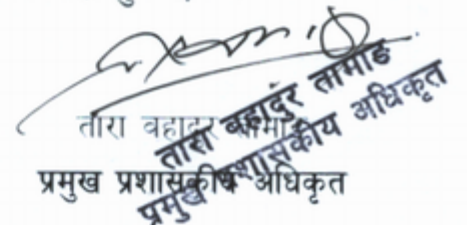 तारा बहादुर तामाङ
प्रमुख प्रशासकीय अधिकृत
तारा बहादुर तामाङ
प्रमुख प्रशासकीय अधिकृत